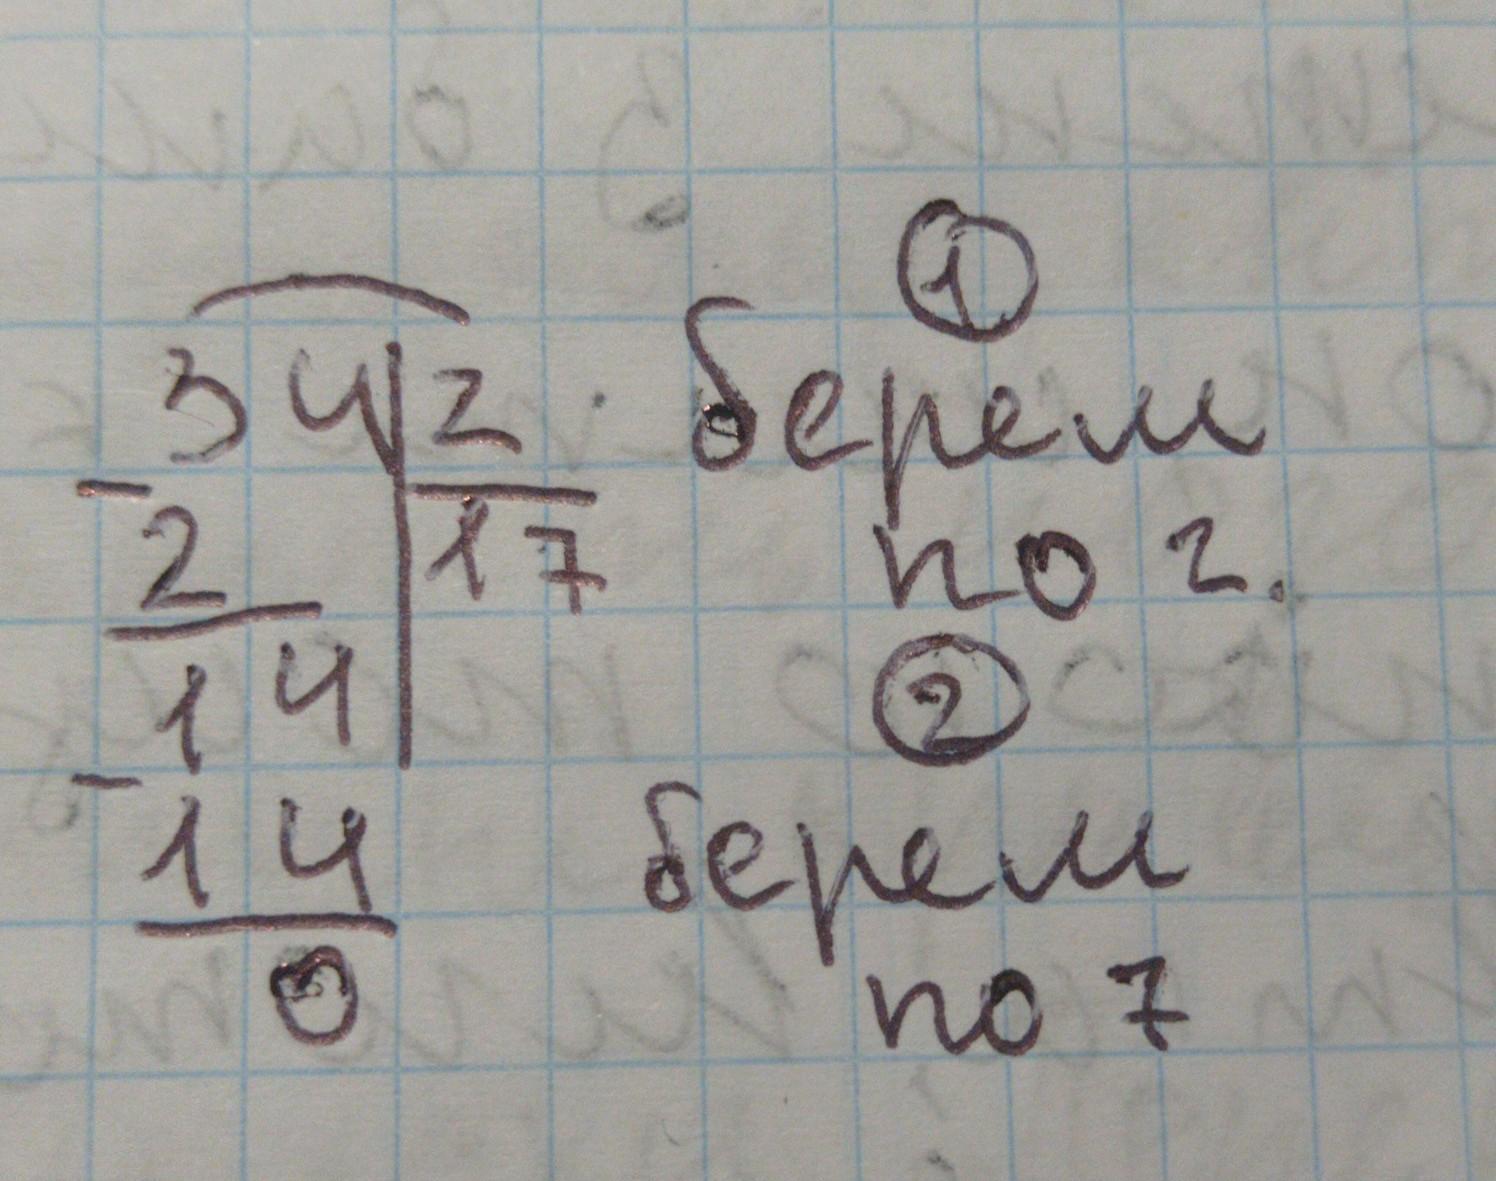 34 2
- 2 17
14
- 14
0
1
берем
по 2.
2
берем
по 7